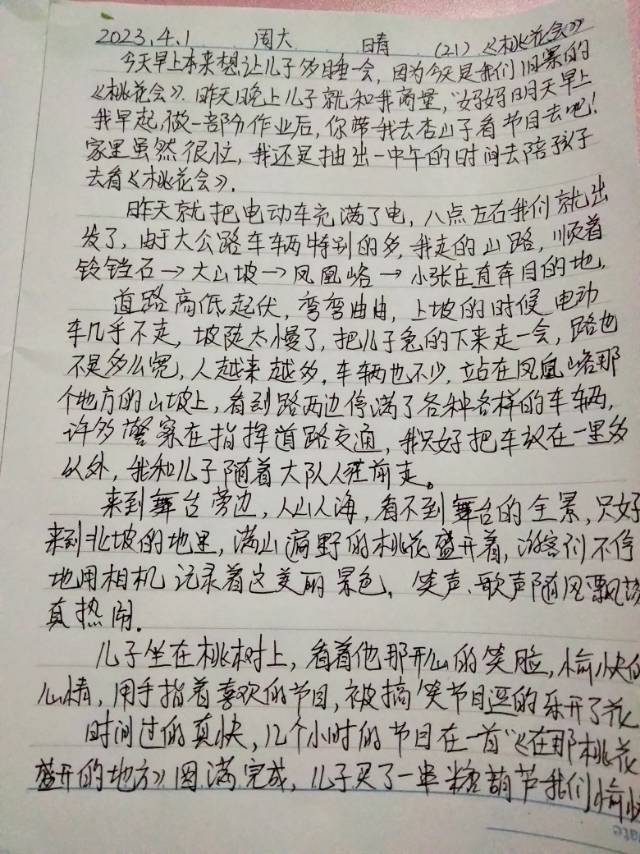 2023.4.1 周六 晴 (21)《桃花会》
今天早上本来想让儿子多睡一会,因为今天是我们旧寨的
《桃花会》.昨天晚上儿子就和我商量,"妈妈明天早上
我早起,做一部分作业后,你带我去杏山子看节目去吧!
家里虽然很忙,我还是抽出一中午的时间去陪孩子
去看《桃花会》.
昨天就把电动车充满了电,八点左右我们就出
发了,由于大公路车辆特别的多,我走的山路,顺着
铃铛石→大山坡→凤凰峪→小张庄直奔目的地.
道路高低起伏,弯弯曲曲,上坡的时候电动
车几乎不走,坡陡太慢了,把儿子的下来走一会,路也
不是多么宽,人越来越多,车辆也不少,站在凤凰峪那
个地方的山坡上,看到路两边停满了各种各样的车辆,
许多警察在指挥道路交通,我只好把车放在一里多
以外,我和儿子随着大队人往前走。
来到舞台旁边,人山人海,看不到舞台的全景,只好
来到北坡的地里,满山遍野的桃花盛开着,游客们不停
地用相机记录着这美丽景色,笑声、歌声随风飘荡
真热闹.
儿子坐在桃树上,看着他那开心的笑脸,愉快的
心情,用手指着喜欢的节目,被搞笑节目逗的乐开了花
时间过的真快,几个小时的节目在一首"《在那桃花
盛开的地方》圆满完成,儿子买了一串糖葫芦我们愉快